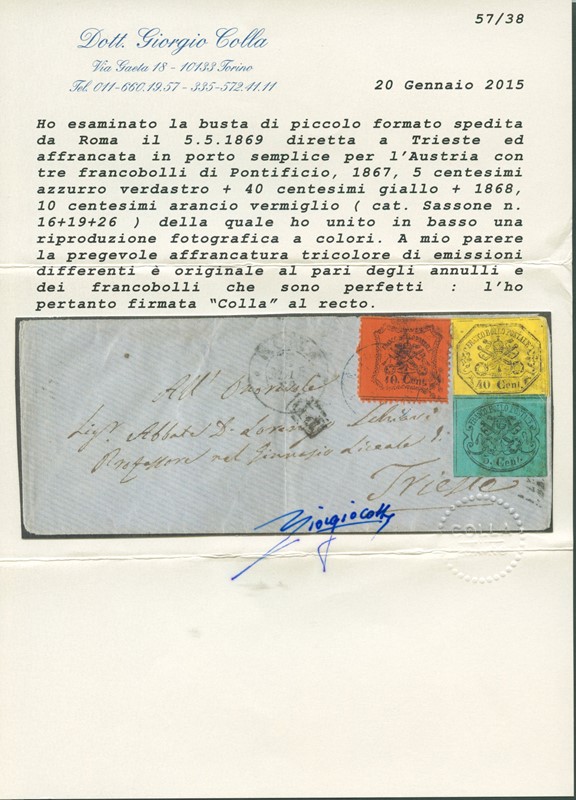 57/38
Dott. Giorgio Colla
Via Gaeta 18 - 10133 Torino
Tel. 011-660.19.57 - 335-572.41.11
20 Gennaio 2015
Ho esaminato la busta di piccolo formato spedita
da Roma il 5.5.1869 diretta a Trieste ed
affrancata in porto semplice per l'Austria con
tre francobolli di Pontificio, 1867, 5 centesimi
azzurro verdastro + 40 centesimi giallo + 1868,
10 centesimi arancio vermiglio ( cat. Sassone n.
16+19+26 ) della quale ho unito in basso una
riproduzione fotografica a colori. A mio parere
la pregevole affrancatura tricolore di emissioni
differenti è originale al pari degli annulli e
dei francobolli che sono perfetti : l'ho
pertanto firmata "Colla" al recto.
10 Cent.
FRANCO BOLLO POSTALE
40 Cent.
5 Cent.
All'
Sigr. Abbate D. Lorenzo
Professore nel Ginnasio
Trieste
Giorgio Colla
COLLA